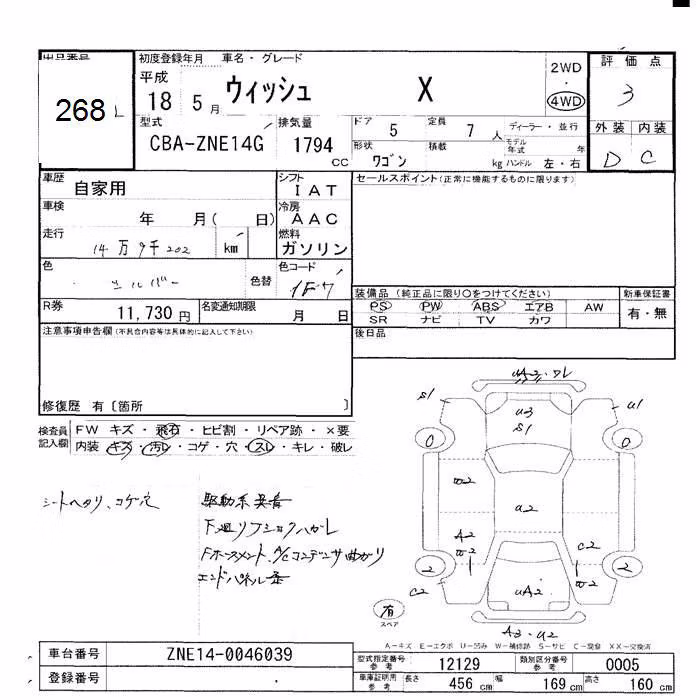 出品番号
268 L
初度登録年月 車名・グレード
平成 18 5月 ウィッシュ X
2WD
・
4WD
評価点
3
外装 内装
D C
型式 CBA-ZNE14G
排気量 1794 CC
ドア 5 定員 7人 ディーラー・並行
形状 ワゴン 積載 kg モデル年式 年
ハンドル 左・右
車歴 自家用
シフト IAT
セールスポイント(正常に機能するものに限ります)
車検 年 月( 日)
冷房 AAC
走行 14万9千202 km
燃料 ガソリン
色 シルバー 色替
色コード 1F7
R券 11,730円 名変通知期限 月 日
装備品 (純正品に限り〇をつけてください) 新車保証書
PS PW ABS エアB AW 有・無
SR ナビ TV カワ
後日品
注意事項申告欄(不具合内容等は具体的に記入して下さい)
修復歴 有〔箇所 〕
検査員記入欄
FW キズ・飛石・ヒビ割・リペア跡・×要
内装 キズ・汚レ・コゲ・穴・スレ・キレ・破レ
シートヘタリ、コゲ穴
駆動系異音
下廻リフショックハガレ
Fホースメント、A/Cコンデンサ曲がり
エンドパネル歪
S1
U3
S1
U1
W2
A2
W2
C2
C2
W2
UA2
A3・U2
有
スペア
A-キズ E-エクボ U-凹み W-補修跡 S-サビ C-腐食 XX-交換済
車台番号 ZNE14-0046039
登録番号
型式指定番号 参考 12129 類別区分番号 参考 0005
車庫証明用 参考 長さ 456 cm 幅 169 cm 高さ 160 cm